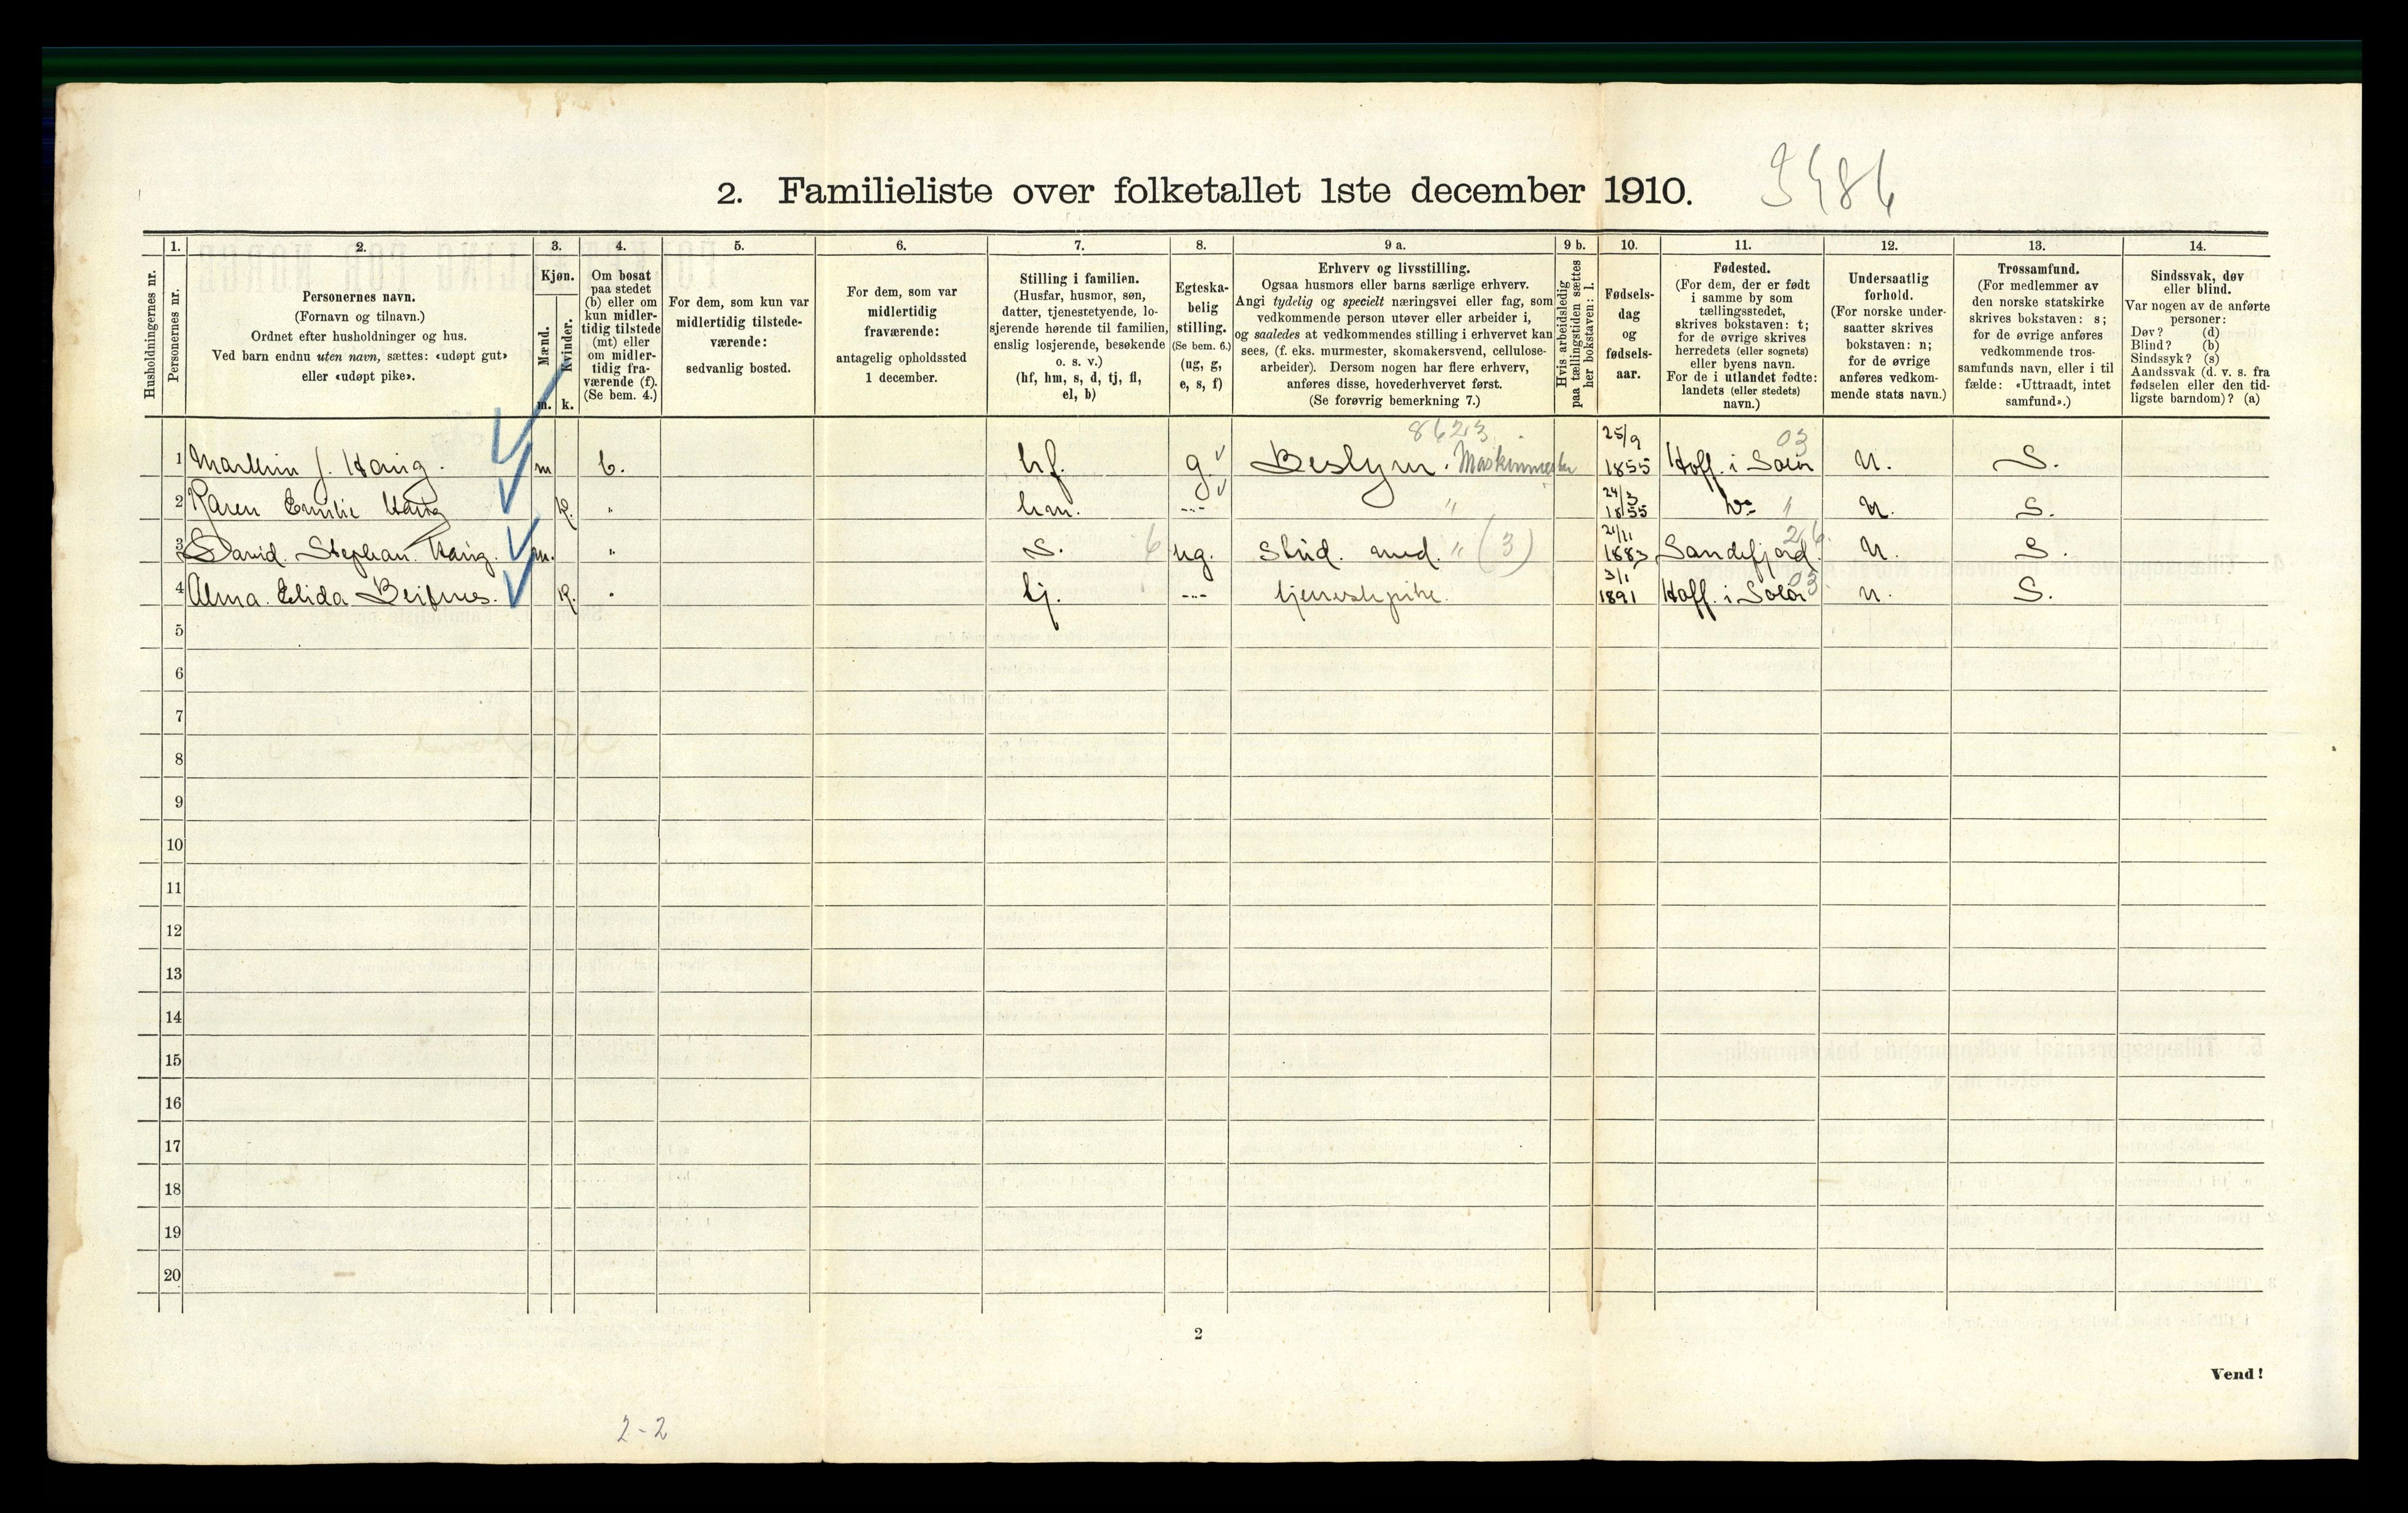 2. Familieliste over folketallet 1ste december 1910.
Husholdningernes nr.
1.
Personernes nr.
2.
Personernes navn.
(Fornavn og tilnavn.)
Ordnet efter husholdninger og hus.
Ved barn endnu uten navn, sættes: «udøpt gut»
eller «udøpt pike».
3.
Kjøn.
Mænd.
Kvinder.
m. k.
4.
Om bosat
paa stedet
(b) eller om
kun midler-
tidig tilstede
(mt) eller
om midler-
tidig fra-
værende (f).
(Se bem. 4.)
5.
For dem, som kun var
midlertidig tilstede-
værende:
sedvanlig bosted.
6.
For dem, som var
midlertidig
fraværende:
antagelig opholdssted
1 december.
7.
Stilling i familien.
(Husfar, husmor, søn,
datter, tjenestetyende, lo-
sjerende hørende til familien,
enslig losjerende, besøkende
o. s. v.)
(hf, hm, s, d, tj, fl,
el, b)
8.
Egteska-
belig
stilling.
(Se bem. 6.)
(ug, g,
e, s, f)
9 a.
Erhverv og livsstilling.
Ogsaa husmors eller barns særlige erhverv.
Angi tydelig og specielt næringsvei eller fag, som
vedkommende person utøver eller arbeider i,
og saaledes at vedkommendes stilling i erhvervet kan
sees, (f. eks. murmester, skomakersvend, cellulose-
arbeider). Dersom nogen har flere erhverv,
anføres disse, hovederhvervet først.
(Se forøvrig bemerkning 7.)
9 b.
Hvis arbeidsledig
paa tællingstiden sættes
her bokstaven: l.
10.
Fødsels-
dag
og
fødsels-
aar.
11.
Fødested.
(For dem, der er født
i samme by som
tællingsstedet,
skrives bokstaven: t;
for de øvrige skrives
herredets (eller sognets)
eller byens navn.
For de i utlandet fødte:
landets (eller stedets)
navn.)
12.
Undersaatlig
forhold.
(For norske under-
saatter skrives
bokstaven: n;
for de øvrige
anføres vedkom-
mende stats navn.)
13.
Trossamfund.
(For medlemmer av
den norske statskirke
skrives bokstaven: s;
for de øvrige anføres
vedkommende tros-
samfunds navn, eller i til
fælde: «Uttraadt, intet
samfund».)
14.
Sindssvak, døv
eller blind.
Var nogen av de anførte
personer:
Døv? (d)
Blind? (b)
Sindssyk? (s)
Aandssvak (d. v. s. fra
fødselen eller den tid-
ligste barndom)? (a)
8623 03
1 J. Haug. m b. hf. g. Bestyrer. Maskinmester 25/9 1855 Hoff. i Solør n. S.
2 Karen Emilie Haug k. " hm. -"- " 24/3 1855 Do 1 n. S.
3 David. Stephan. Haug. m. " s. 6 ug. Stud. med. " (3) 21/11 1883 Sandefjord. 26 n. S.
4 Alma. Elida k. " tj. -"- tjenestepike. 3/1 1891 Hoff. i Solør 03 n. S.
5
6
7
8
9
10
11
12
13
14
15
16
17
18
19
20
2
Vend!
2-2